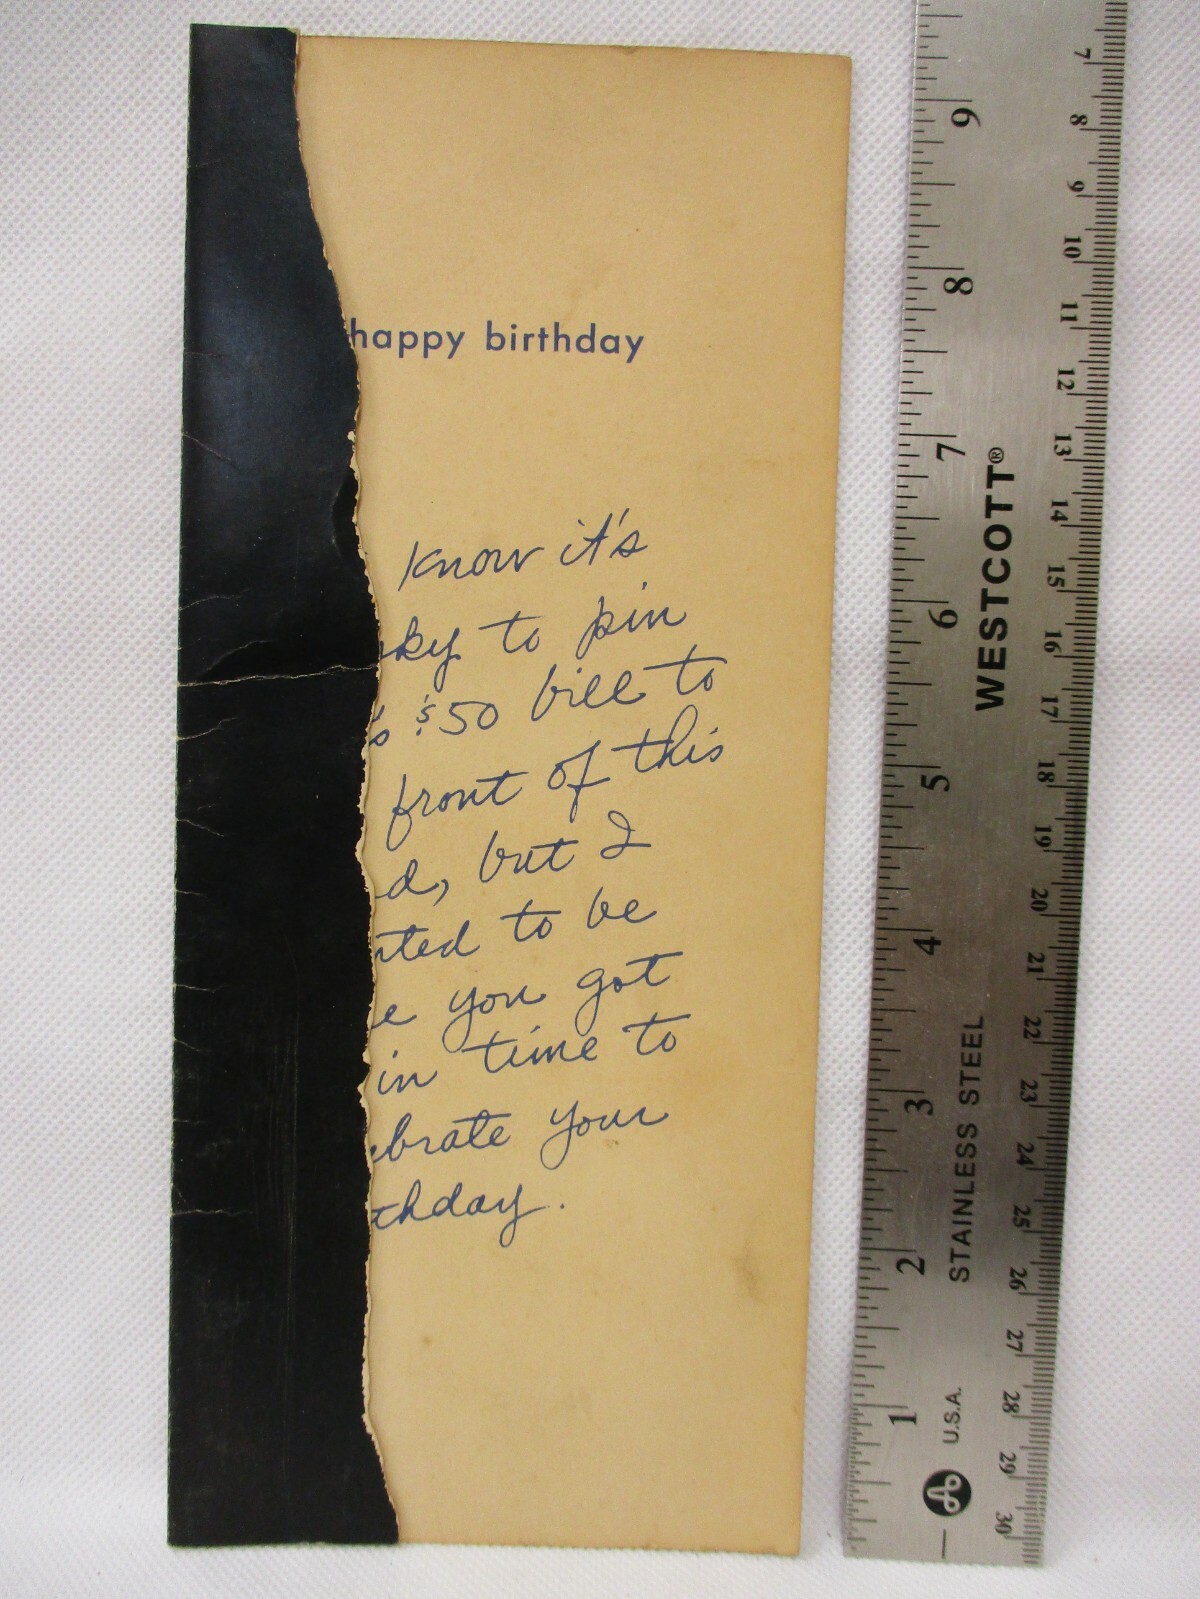 happy birthday
know it's
ky to pin
's $50 bill to
front of this
d, but I
nted to be
e you got
in time to
ebrate your
thday.
WESTCOTT®
STAINLESS STEEL
U.S.A.
1 2 3 4 5 6 7 8 9
7 8 9 10 11 12 13 14 15 16 17 18 19 20 21 22 23 24 25 26 27 28 29 30